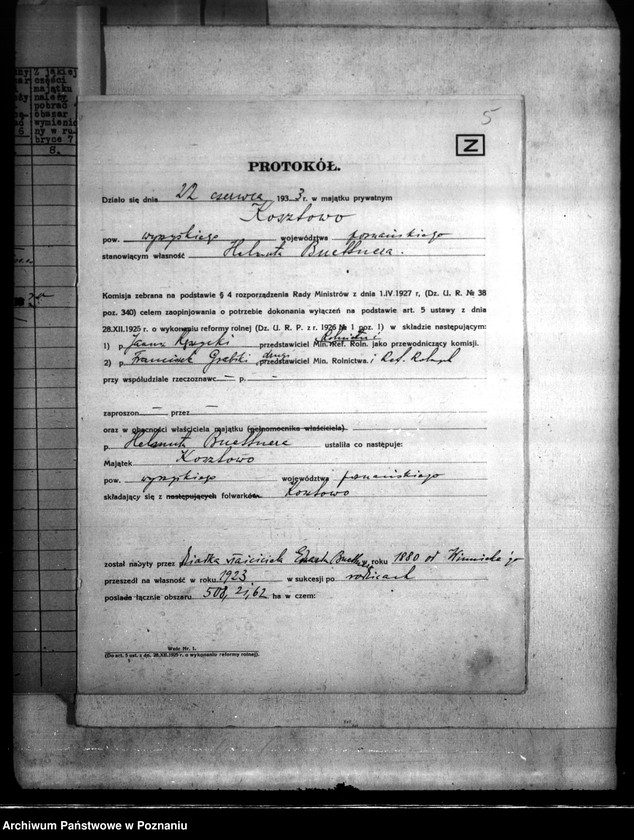 z jakiej
części
majątku
należy
pobrać
obszar
wymienio
ny w ru
bryce 7
6
8.
5
Z
PROTOKÓŁ.
Działo się dnia 22 czerwca 1933 r. w majątku prywatnym
Kosztowo
pow. wyrzyskiego województwa poznańskiego
stanowiącym własność Helmuta Buettnera.
Komisja zebrana na podstawie § 4 rozporządzenia Rady Ministrów z dnia 1.IV.1927 r, (Dz. U. R. № 38
poz. 340) celem zaopinjowania o potrzebie dokonania wyłączeń na podstawie art. 5 ustawy z dnia
28.XII.1925 r. o wykonaniu reformy rolnej (Dz. U. R. P. z r. 1926 № 1 poz. 1) w składzie następującym:
Rolnictwa i
1) p. przedstawiciel Min. Ref. Roln. jako przewodniczący komisji.
drugi
2) p. Franciszek Grabski przedstawiciel Min. Rolnictwa i Ref. Rolnych
przy współudziale rzeczoznawc — p. —
zaproszon — przez —
oraz w obecności właściciela majątku (pełnomocnika właściciela)
p. Helmuta Buettnera ustaliła co następuje:
Majątek Kosztowo
pow. wyrzyskiego województwa poznańskiego
składający się z następujących folwarków. Kosztowo
został nabyty przez dziadka właściciela w roku 1880 od
przeszedł na własność w roku 1923 w sukcesji po rodzicach
posiada łącznie obszaru 508,21,62 ha w czem:
Wzór Nr. 1.
(Do art. 5 ust. z dn. 28.XII.1925 r. o wykonaniu reformy rolnej).
Archiwum Państwowe w Poznaniu